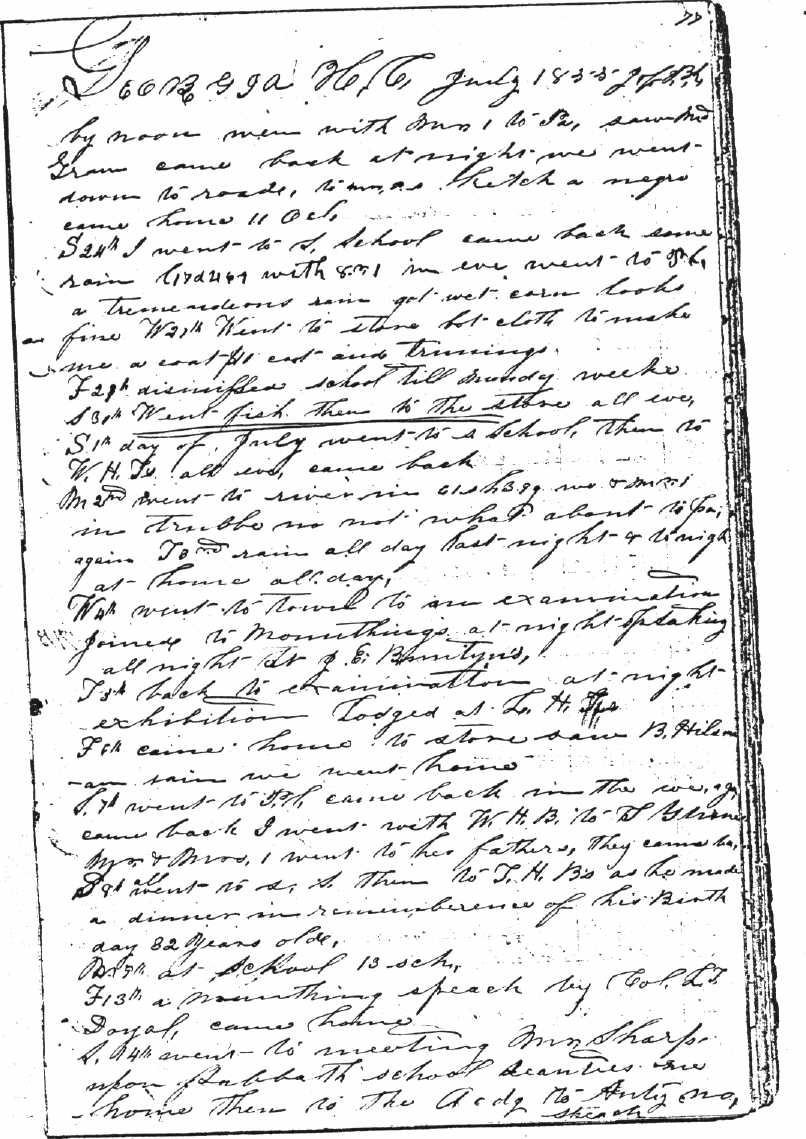 77
GEORGIA H, C, July 1855
by noon went with Mrs 1 to Pa, saw
came back at night we went
down to roads, to ketch a negro
came home 11 Oct,
S 24th I went to S, School came back some
rain with 8 in eve, went to
a tremendeons rain got wet corn looks
fine W 27th Went to store bot cloth to make
me a coat $1 cost and trimings.
F 29th dismissed school till Munday weeke
S 30th Went fish then to the store all eve,
S 1th day of July went to s School, then to
W. H. Ts all eve, came back
M 2nd went to river in we & mrs 1
in trubbe no not what about to Pa,
again T 3rd rain all day last night & to nigh
at home all day,
W 4th went to town to an examination
Joined to Monuthings at night speaking
all night at J. E.
T 5th back to examination at night
exhibition Lodged at L. H.
F 6th came home to store saw B. Hilsm
an rain we went home
S. 7th went to came back in the we,
came back I went with W. H. B. to
Mrs & Bros, 1 went to her fathers, they came
S 8th all went to s, S. then to T. H. B's as he made
a dinner in rememberence of his Birth
day 32 years olde,
at School 13 sch,
F 13th a monuthing speach by Col. L. T.
Doyal, came home
S. 14th went to meeting Mr Sharp
upon Sabbath school beauties
home then to the Acdy to Anty no,
speach